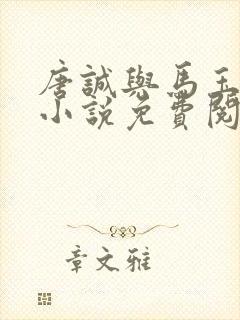 唐誠與馬玉
小說免費閱
章文雅